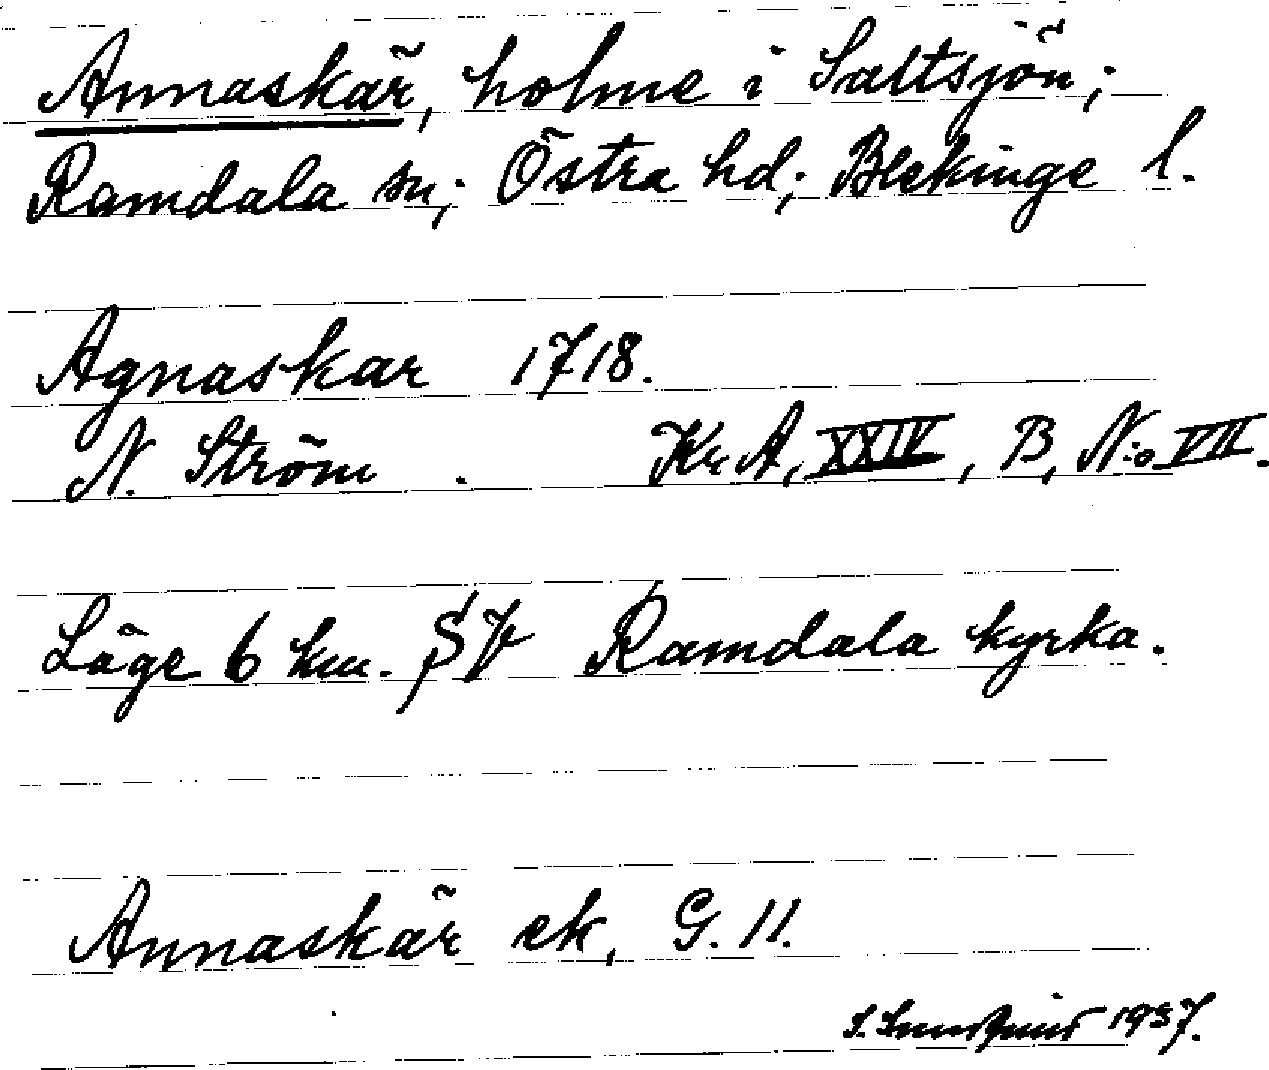 Annaskär, holme i Saltsjön;
Ramdala sn; Östra hd; Blekinge l.
Agnaskar 1718.
N. Ström. Kr. A, XXIV, B, N:o VII.
Läge 6 km. SV Ramdala kyrka.
Annaskär ek, G. 11.
1937.